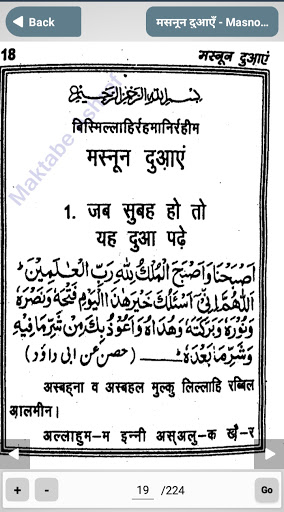 Back
मसनून दुआएँ - Masno...
18
मस्नून दुआएं
بسم الله الرحمن الرحيم
बिस्मिल्लाहिर्रहमानिर्रहीम
मस्नून दुआएं
1. जब सुबह हो तो
यह दुआ पढ़े
اَصْبَحْنَا وَاَصْبَحَ الْمُلْكُ لِلّٰهِ رَبِّ الْعٰلَمِيْنَ ط
اَللّٰهُمَّ اِنِّىْ اَسْئَلُكَ خَيْرَ هٰذَا الْيَوْمِ فَتْحَهٗ وَنَصْرَهٗ
وَنُوْرَهٗ وَبَرَكَتَهٗ وَهُدَاهُ وَاَعُوْذُ بِكَ مِنْ شَرِّ مَا فِيْهِ
وَشَرِّ مَا بَعْدَهٗ ط (حصن عن ابی داؤد)
अस्बहना व अस्बहल मुल्कु लिल्लाहि रब्बिल
आलमीन।
अल्लाहुम-म इन्नी अस्अलु-क ख़ै-र
Maktabe
+ - 19 /224 Go